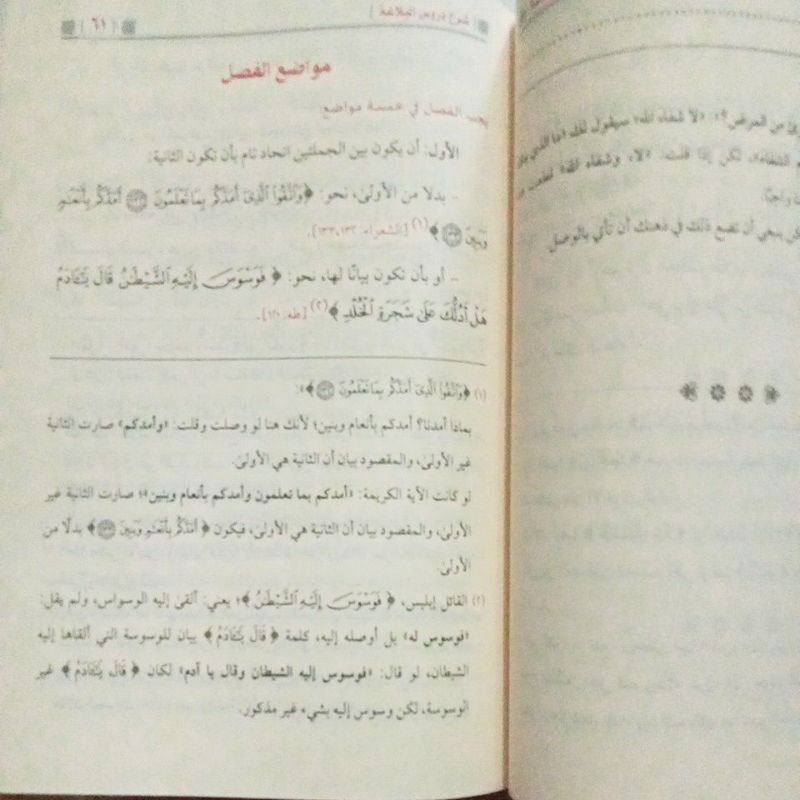 شرح دروس البلاغة
٦١
مواضع الفصل
يجب الفصل في خمسة مواضع:
الأول: أن يكون بين الجملتين اتحاد تام بأن تكون الثانية:
- بدلا من الأولى، نحو: ﴿وَاتَّقُوا الَّذِي أَمَدَّكُم بِمَا تَعْلَمُونَ ١٣٢ أَمَدَّكُم بِأَنْعَامٍ
وَبَنِينَ ١٣٣﴾(١) [الشعراء: ١٣٢، ١٣٣].
- أو بأن تكون بيانًا لها، نحو: ﴿فَوَسْوَسَ إِلَيْهِ الشَّيْطَانُ قَالَ يَا آدَمُ
هَلْ أَدُلُّكَ عَلَى شَجَرَةِ الْخُلْدِ﴾(٢) [طه: ١٢٠].
(١) ﴿وَاتَّقُوا الَّذِي أَمَدَّكُم بِمَا تَعْلَمُونَ ١٣٢﴾:
بماذا أمدنا؟ أمدكم بأنعام وبنين؛ لأنك هنا لو وصلت وقلت: «وأمدكم» صارت الثانية
غير الأولى، والمقصود بيان أن الثانية هي الأولى.
لو كانت الآية الكريمة: «أمدكم بما تعلمون وأمدكم بأنعام وبنين»؛ صارت الثانية غير
الأولى، والمقصود بيان أن الثانية هي الأولى، فيكون ﴿أَمَدَّكُم بِأَنْعَامٍ وَبَنِينَ ١٣٣﴾ بدلًا من
الأولى.
(٢) القائل إبليس، ﴿فَوَسْوَسَ إِلَيْهِ الشَّيْطَانُ﴾؛ يعني: ألقى إليه الوسواس، ولم يقل:
«فوسوس له» بل أوصله إليه، كلمة ﴿قَالَ يَا آدَمُ﴾ بيان للوسوسة التي ألقاها إليه
الشيطان، لو قال: «فوسوس إليه الشيطان وقال يا آدم» لكان ﴿قَالَ يَا آدَمُ﴾ غير
الوسوسة، لكن وسوس إليه بشيء غير مذكور.
من المرض؟»: «لا شفاه الله» سيقول لك: «ما الذي
الشفاء»، لكن إذا قلت: «لا، وشفاه الله»
واجبًا.
ينبغي أن تضع ذلك في ذهنك أن تأتي بالوصل